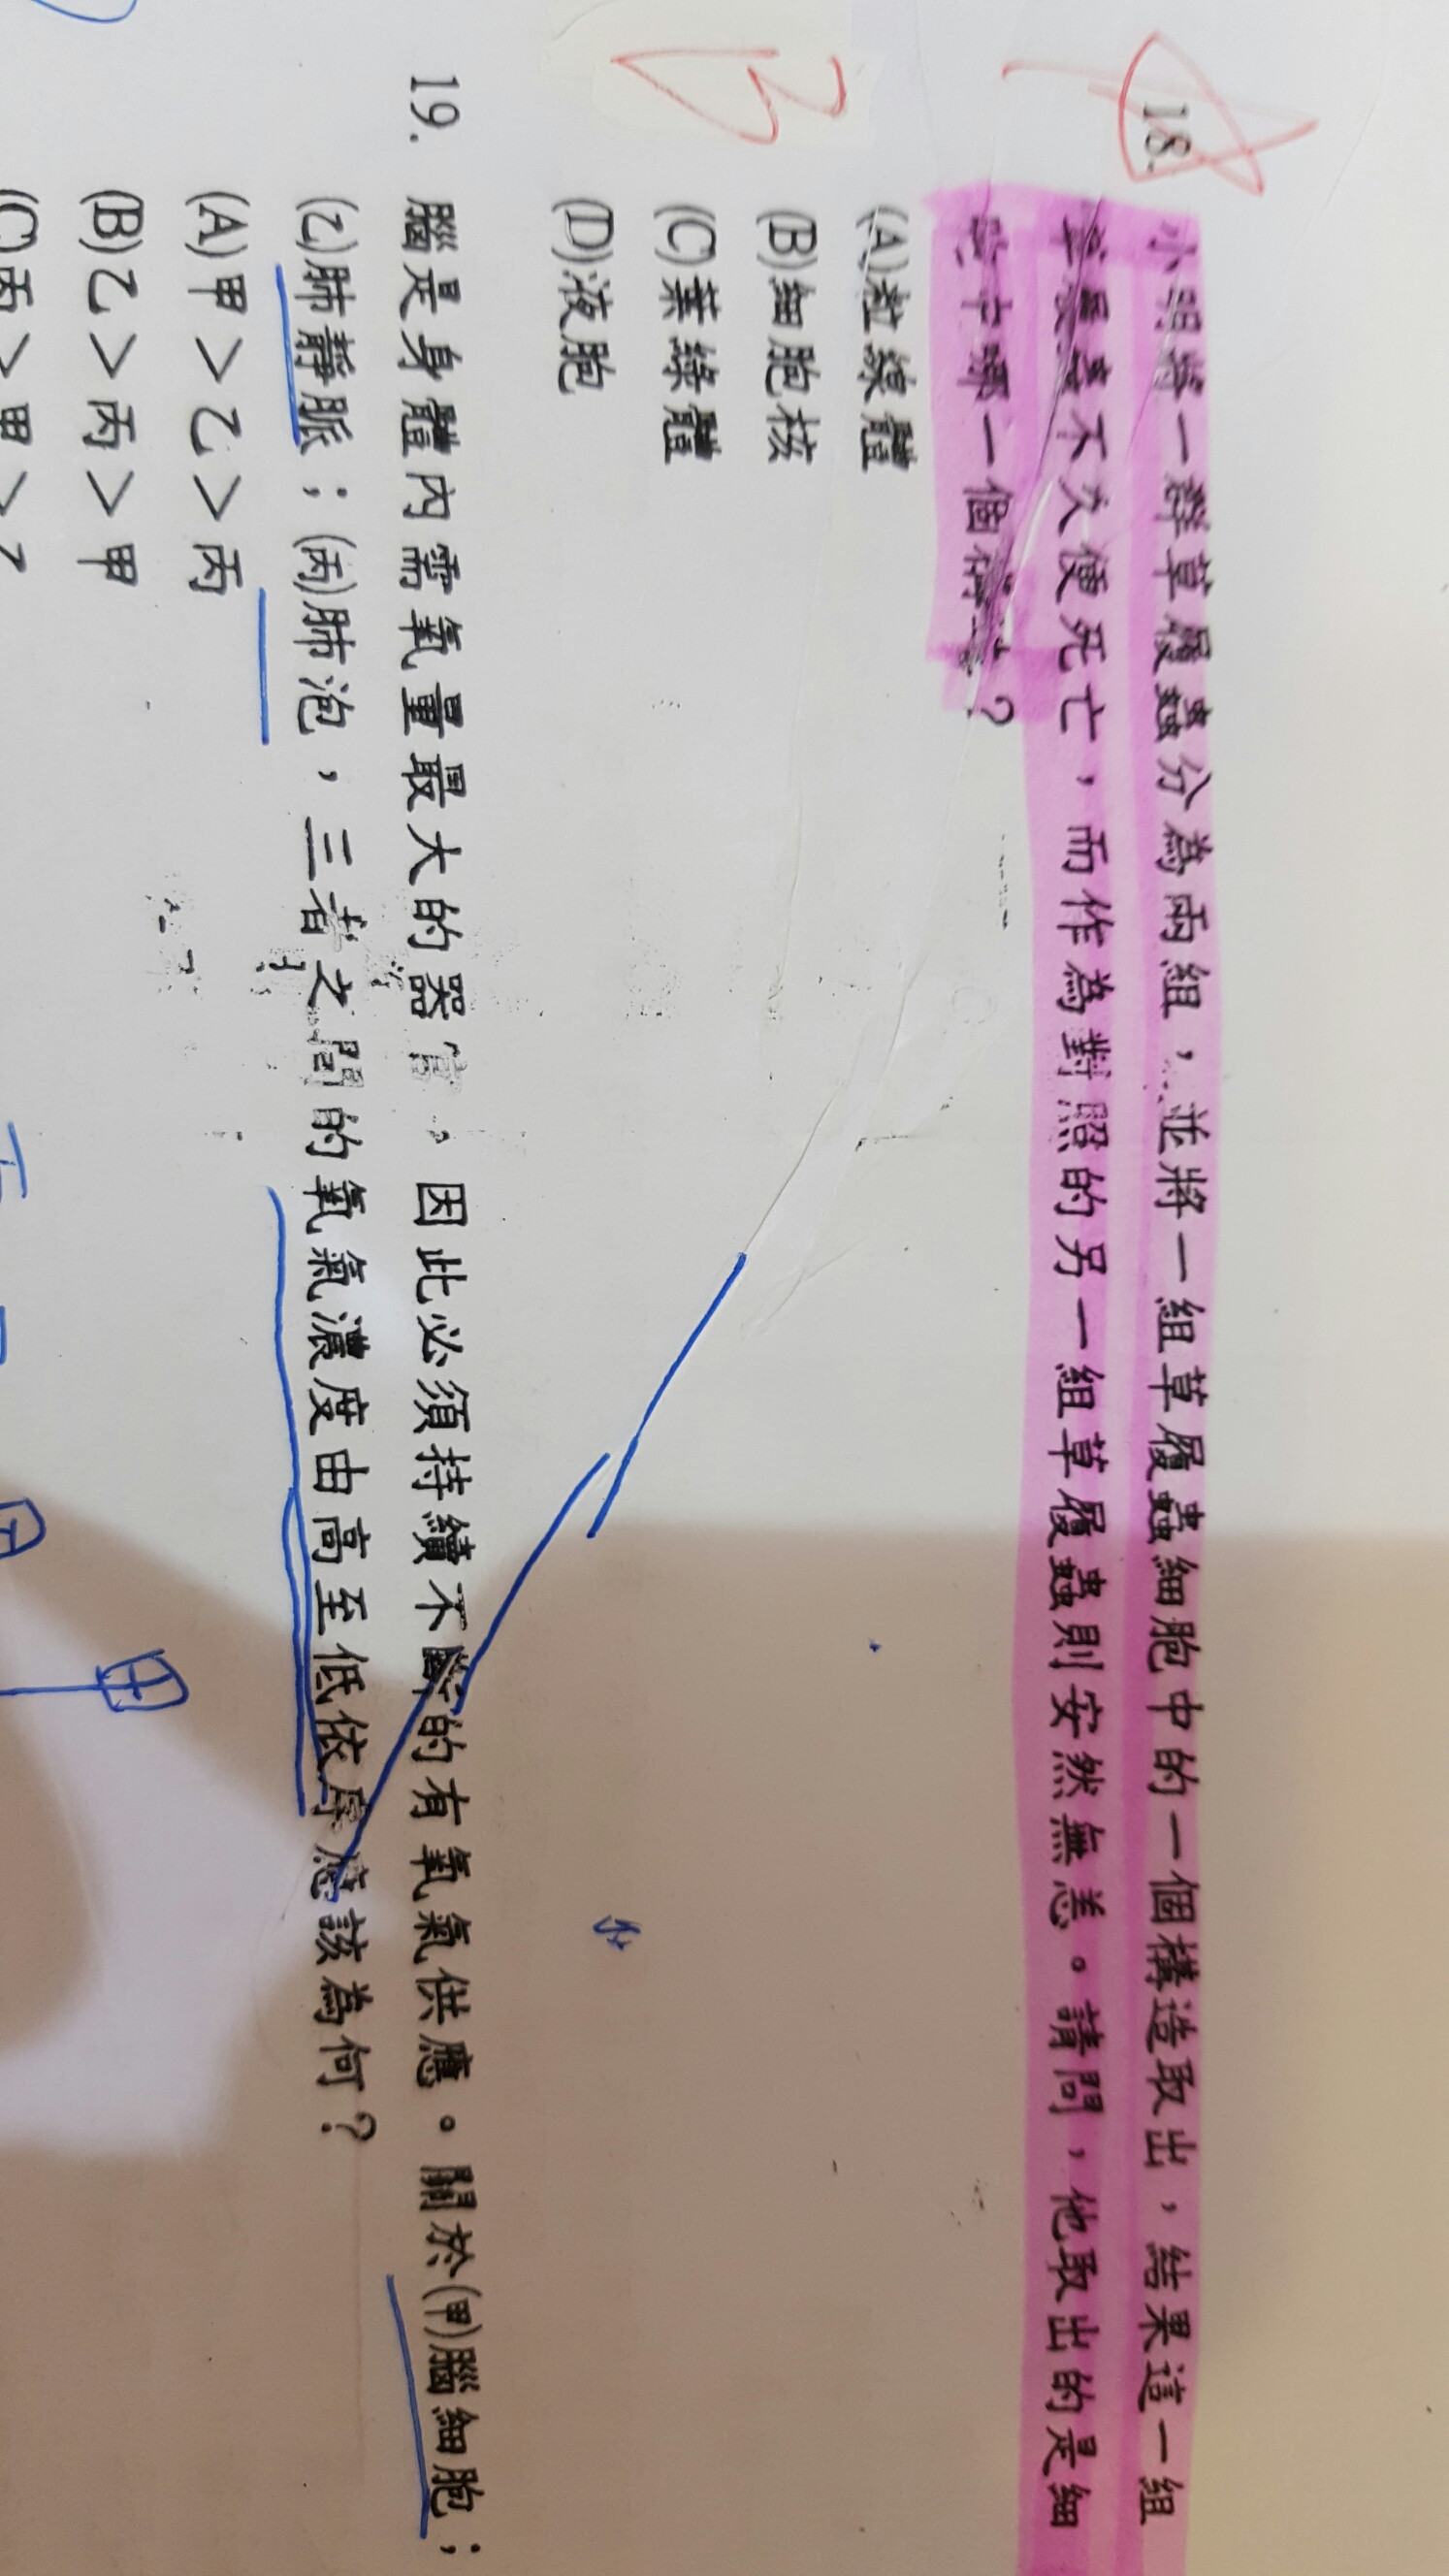 18.
小明將一群草履蟲分為兩組，並將一組草履蟲細胞中的一個構造取出，結果這一組
草履蟲不久便死亡，而作為對照的另一組草履蟲則安然無恙。請問，他取出的是細
胞中哪一個構造？
(A)粒線體
(B)細胞核
(C)葉綠體
(D)液胞
B
19. 腦是身體內需氧量最大的器官，因此必須持續不斷的有氧氣供應。關於(甲)腦細胞；
(乙)肺靜脈；(丙)肺泡，三者之間的氧氣濃度由高至低依序應該為何？
(A)甲＞乙＞丙
(B)乙＞丙＞甲
(C)丙＞甲＞乙
甲